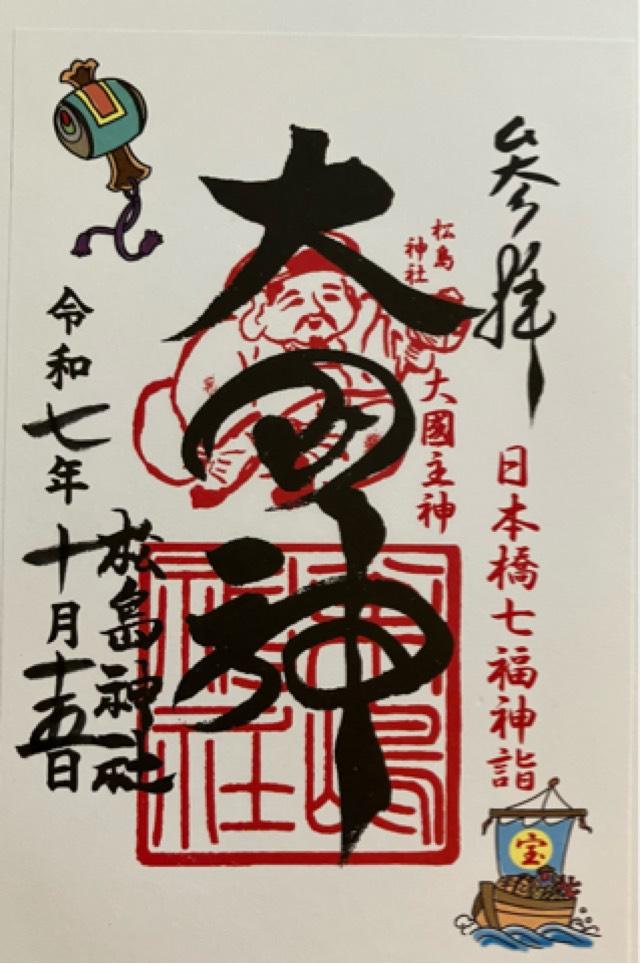 参拝
日本橋七福神詣
松島
神社
大國主神
大国神
松島
神社
松島神社
令和七年十月十五日
宝